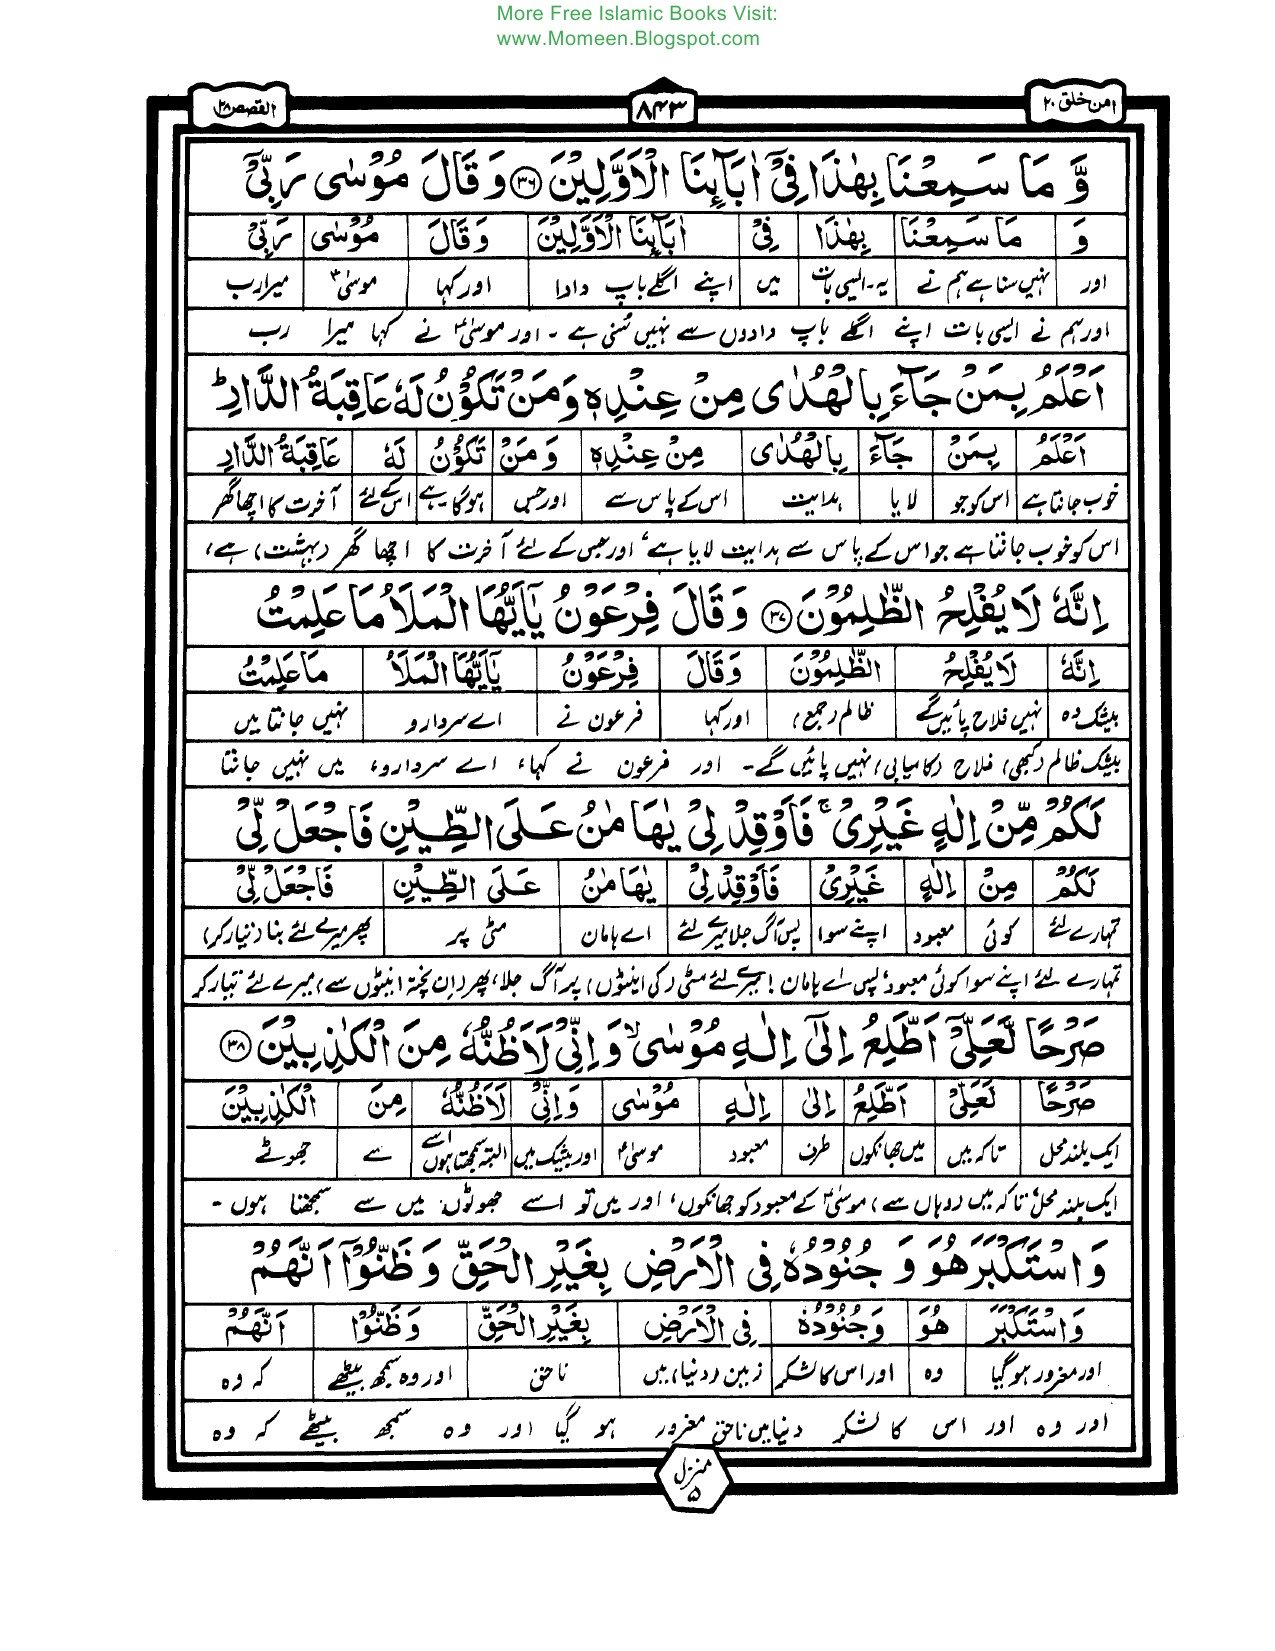 More Free Islamic Books Visit:
www.Momeen.Blogspot.com
امن خلق ۲۰
۸۴۳
القصص ۲۸
وَّ مَا سَمِعْنَا بِهٰذَا فِیْۤ اٰبَآىِٕنَا الْاَوَّلِیْنَ ۳۶ وَ قَالَ مُوْسٰی رَبِّیْۤ
وَ مَا سَمِعْنَا بِهٰذَا فِیْ اٰبَآىِٕنَا الْاَوَّلِیْنَ وَ قَالَ مُوْسٰی رَبِّیْ
اور نہیں سنا ہے ہم نے یہ۔ایسی بات میں اپنے اگلے باپ دادا اور کہا موسیٰؑ میرا رب
اور ہم نے ایسی بات اپنے اگلے باپ دادوں سے نہیں سُنی ہے ۔ اور موسیٰؑ نے کہا میرا رب
اَعْلَمُ بِمَنْ جَآءَ بِالْهُدٰی مِنْ عِنْدِهٖ وَ مَنْ تَكُوْنُ لَهٗ عَاقِبَةُ الدَّارِ ؕ
اَعْلَمُ بِمَنْ جَآءَ بِالْهُدٰی مِنْ عِنْدِهٖ وَ مَنْ تَكُوْنُ لَهٗ عَاقِبَةُ الدَّارِ
خوب جانتا ہے اس کو جو لایا ہدایت اس کے پاس سے اور جس ہوگا ہے اس کے لئے آخرت کا اچھا گھر
اس کو خوب جانتا ہے جو اس کے پاس سے ہدایت لایا ہے، اور جس کے لئے آخرت کا اچھا گھر (بہشت) ہے،
اِنَّهٗ لَا یُفْلِحُ الظّٰلِمُوْنَ ۳۷ وَ قَالَ فِرْعَوْنُ یٰۤاَیُّهَا الْمَلَاُ مَا عَلِمْتُ
اِنَّهٗ لَا یُفْلِحُ الظّٰلِمُوْنَ وَ قَالَ فِرْعَوْنُ یٰۤاَیُّهَا الْمَلَاُ مَا عَلِمْتُ
بیشک وہ نہیں فلاح پائیں گے ظالم (جمع) اور کہا فرعون نے اے سردارو نہیں جانتا میں
بیشک ظالم (کبھی) فلاح (کامیابی) نہیں پائیں گے۔ اور فرعون نے کہا، اے سردارو، میں نہیں جانتا
لَكُمْ مِّنْ اِلٰهٍ غَیْرِیْ ۚ فَاَوْقِدْ لِیْ یٰهَامٰنُ عَلَی الطِّیْنِ فَاجْعَلْ لِّیْ
لَكُمْ مِنْ اِلٰهٍ غَیْرِیْ فَاَوْقِدْ لِیْ یٰهَامٰنُ عَلَی الطِّیْنِ فَاجْعَلْ لِّیْ
تمہارے لئے کوئی معبود اپنے سوا پس آگ جلا میرے لئے اے ہامان مٹی پر پھر میرے لئے بنا (تیار کر)
تمہارے لئے اپنے سوا کوئی معبود، پس اے ہامان! میرے لئے مٹی (کی اینٹوں) پر آگ جلا، پھر (ان پختہ اینٹوں سے) میرے لئے تیار کر
صَرْحًا لَّعَلِّیْۤ اَطَّلِعُ اِلٰۤی اِلٰهِ مُوْسٰی ۙ وَ اِنِّیْ لَاَظُنُّهٗ مِنَ الْكٰذِبِیْنَ ۳۸
صَرْحًا لَعَلِّیْ اَطَّلِعُ اِلٰی اِلٰهِ مُوْسٰی وَ اِنِّیْ لَاَظُنُّهٗ مِنَ الْكٰذِبِیْنَ
ایک بلند محل تاکہ میں میں جھانکوں طرف معبود موسیٰؑ اور بیشک میں البتہ سمجھتا ہوں اسے سے جھوٹے
ایک بلند محل، تاکہ میں (وہاں سے) موسیٰؑ کے معبود کو جھانکوں، اور میں تو اسے جھوٹوں میں سے سمجھتا ہوں ۔
وَ اسْتَكْبَرَ هُوَ وَ جُنُوْدُهٗ فِی الْاَرْضِ بِغَیْرِ الْحَقِّ وَ ظَنُّوْۤا اَنَّهُمْ
وَ اسْتَكْبَرَ هُوَ وَ جُنُوْدُهٗ فِی الْاَرْضِ بِغَیْرِ الْحَقِّ وَ ظَنُّوْا اَنَّهُمْ
اور مغرور ہوگیا وہ اور اس کا لشکر زمین (دنیا) میں ناحق اور وہ سمجھ بیٹھے کہ وہ
اور وہ اور اس کا لشکر دنیا میں ناحق مغرور ہو گیا اور وہ سمجھ بیٹھے کہ وہ
منزل ۵